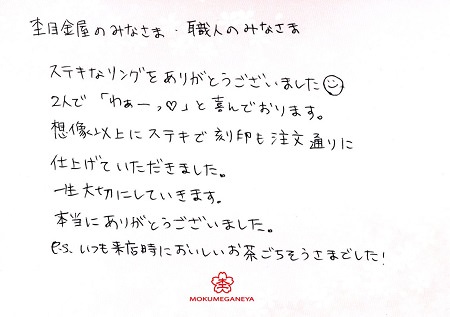 杢目金屋のみなさま・職人のみなさま
ステキなリングをありがとうございました☺
2人で「わぁーっ♡」と喜んでおります。
想像以上にステキで刻印も注文通りに
仕上げていただきました。
一生大切にしていきます。
本当にありがとうございました。
P.S. いつも来店時においしいお茶ごちそうさまでした!
MOKUMEGANEYA